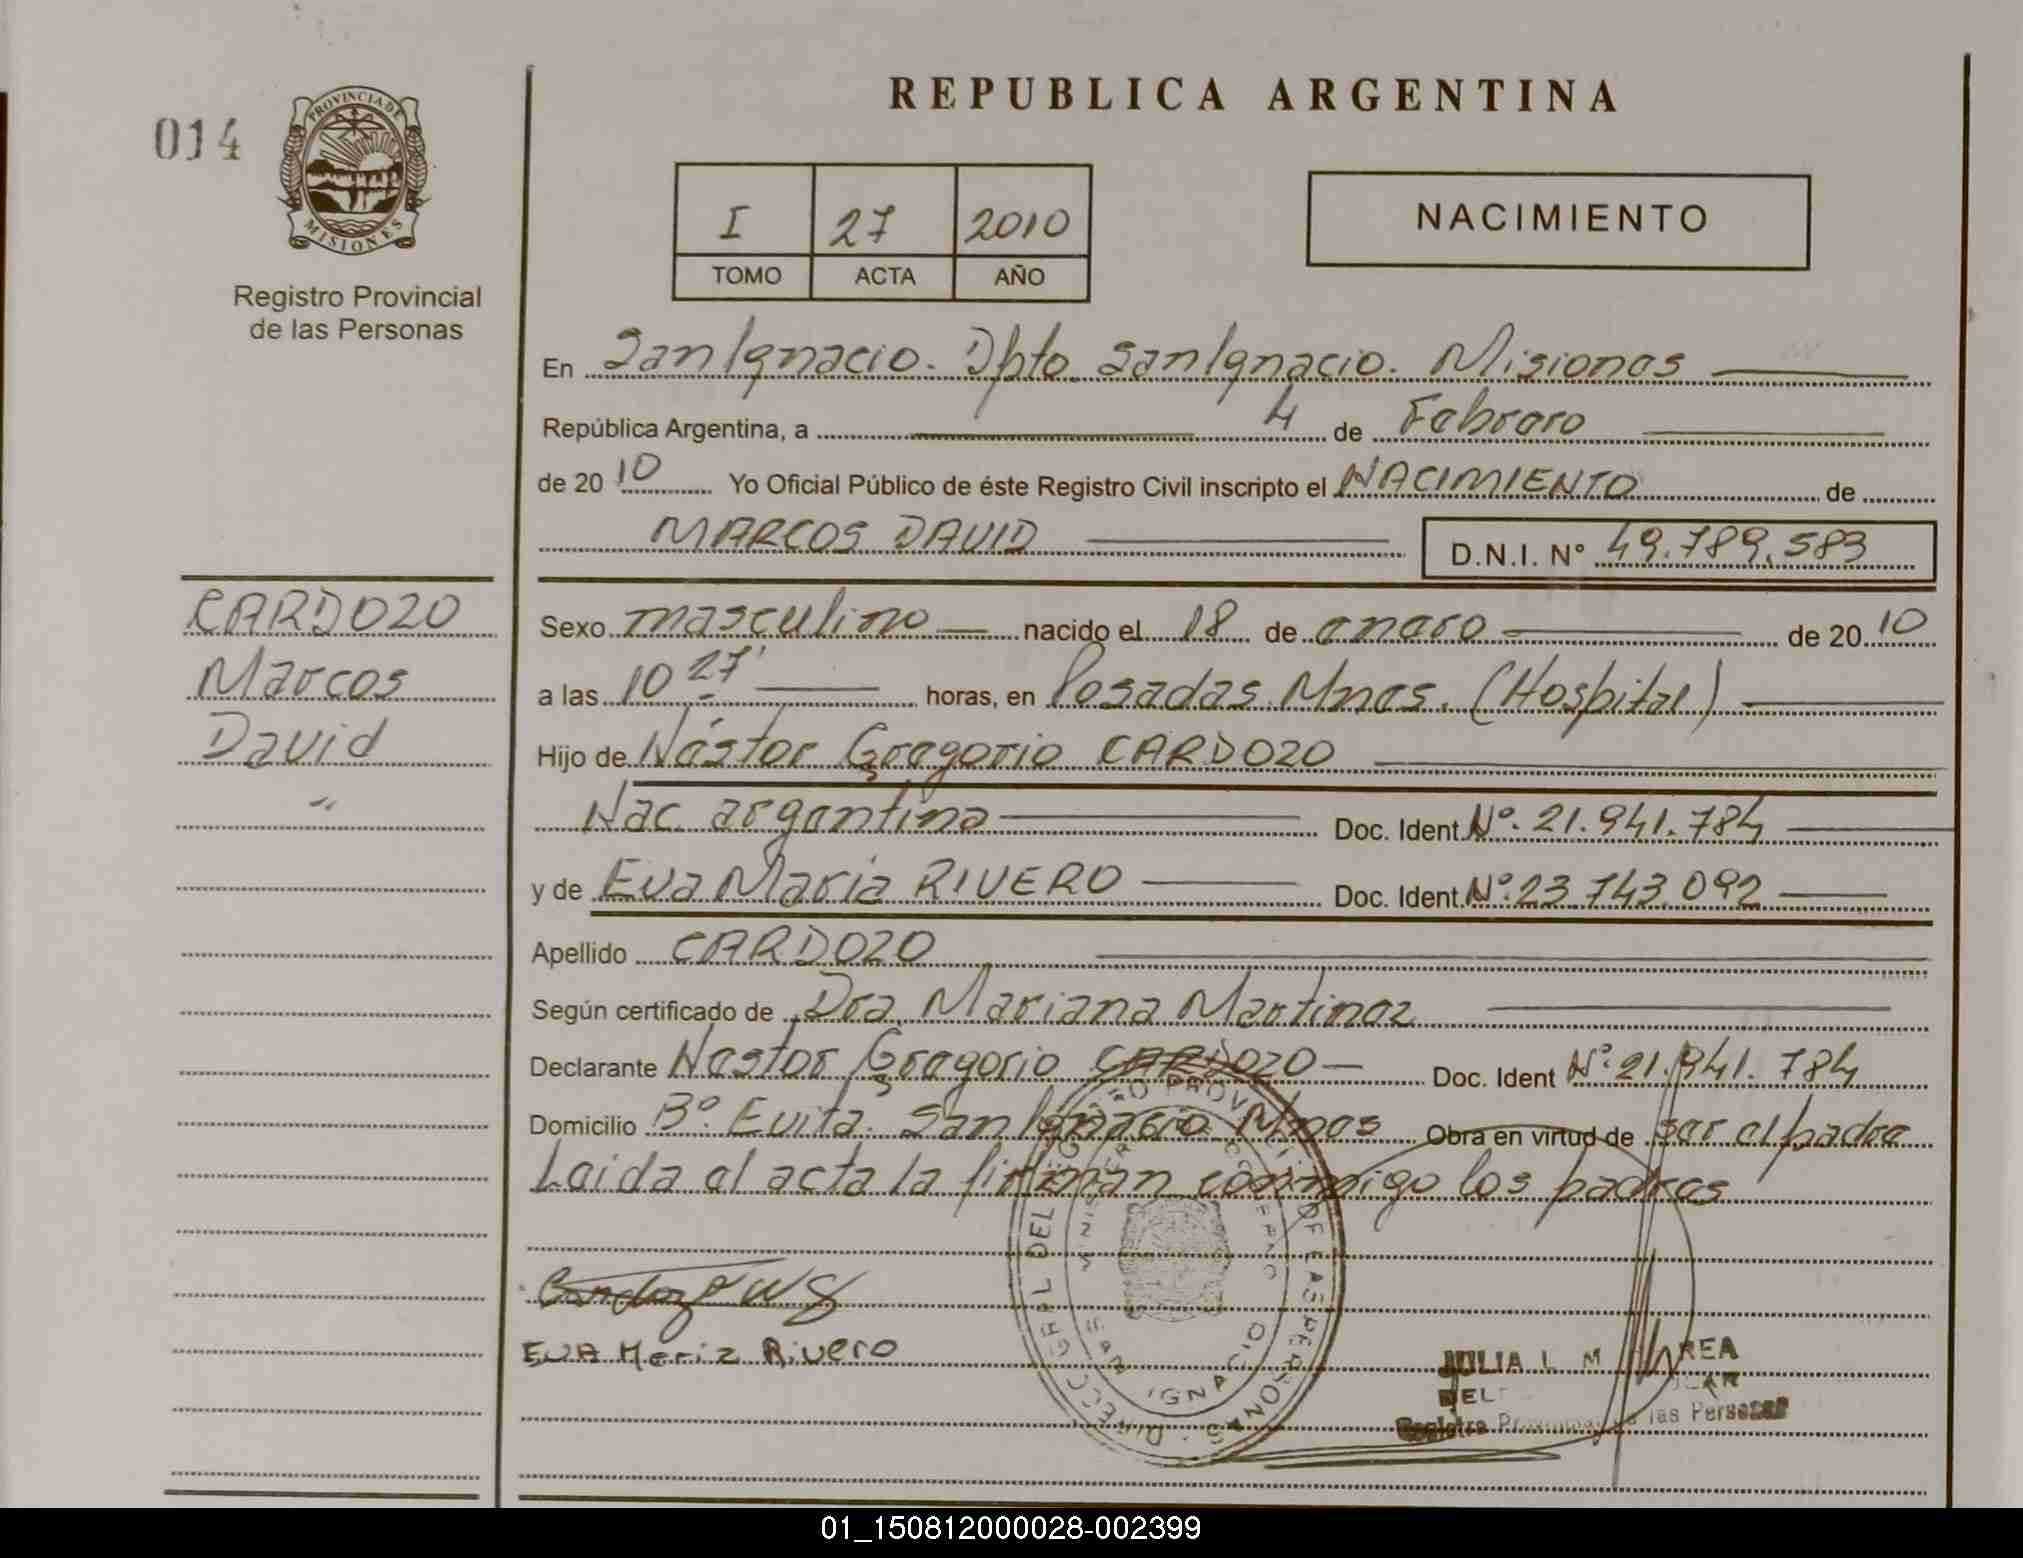 014
PROVINCIA DE
MISIONES
Registro Provincial
de las Personas
REPUBLICA ARGENTINA
I 27 2010
TOMO ACTA AÑO
NACIMIENTO
En San Ignacio. Dpto. San Ignacio. Misiones
República Argentina, a 4 de Febrero
de 2010 Yo Oficial Público de éste Registro Civil inscripto el NACIMIENTO de
MARCOS DAVID D.N.I. N° 49.789.583
CARDOZO
Marcos
David
Sexo masculino nacido el 18 de enero de 2010
a las 10 27' horas, en Posadas. Mnes. (Hospital)
Hijo de Néstor Gregorio CARDOZO
Nac. argentina Doc. Ident. N°. 21.941.784
y de Eva María RIVERO Doc. Ident. N°. 23.743.092
Apellido CARDOZO
Según certificado de Dra. Mariana Martinez
Declarante Nestor Gregorio CARDOZO Doc. Ident N°. 21.941.784
Domicilio B°. Evita. San Ignacio. Mnes Obra en virtud de ser el padre
Leida el acta la firman conmigo los padres
Cardozo N G
EVA Maria Rivero
DIRECC. GRAL DEL REGISTRO PROVINCIAL DE LAS PERSONAS
SAN IGNACIO
JULIA L. M REA
DEL
Registro Provincial de las Personas
01_150812000028-002399